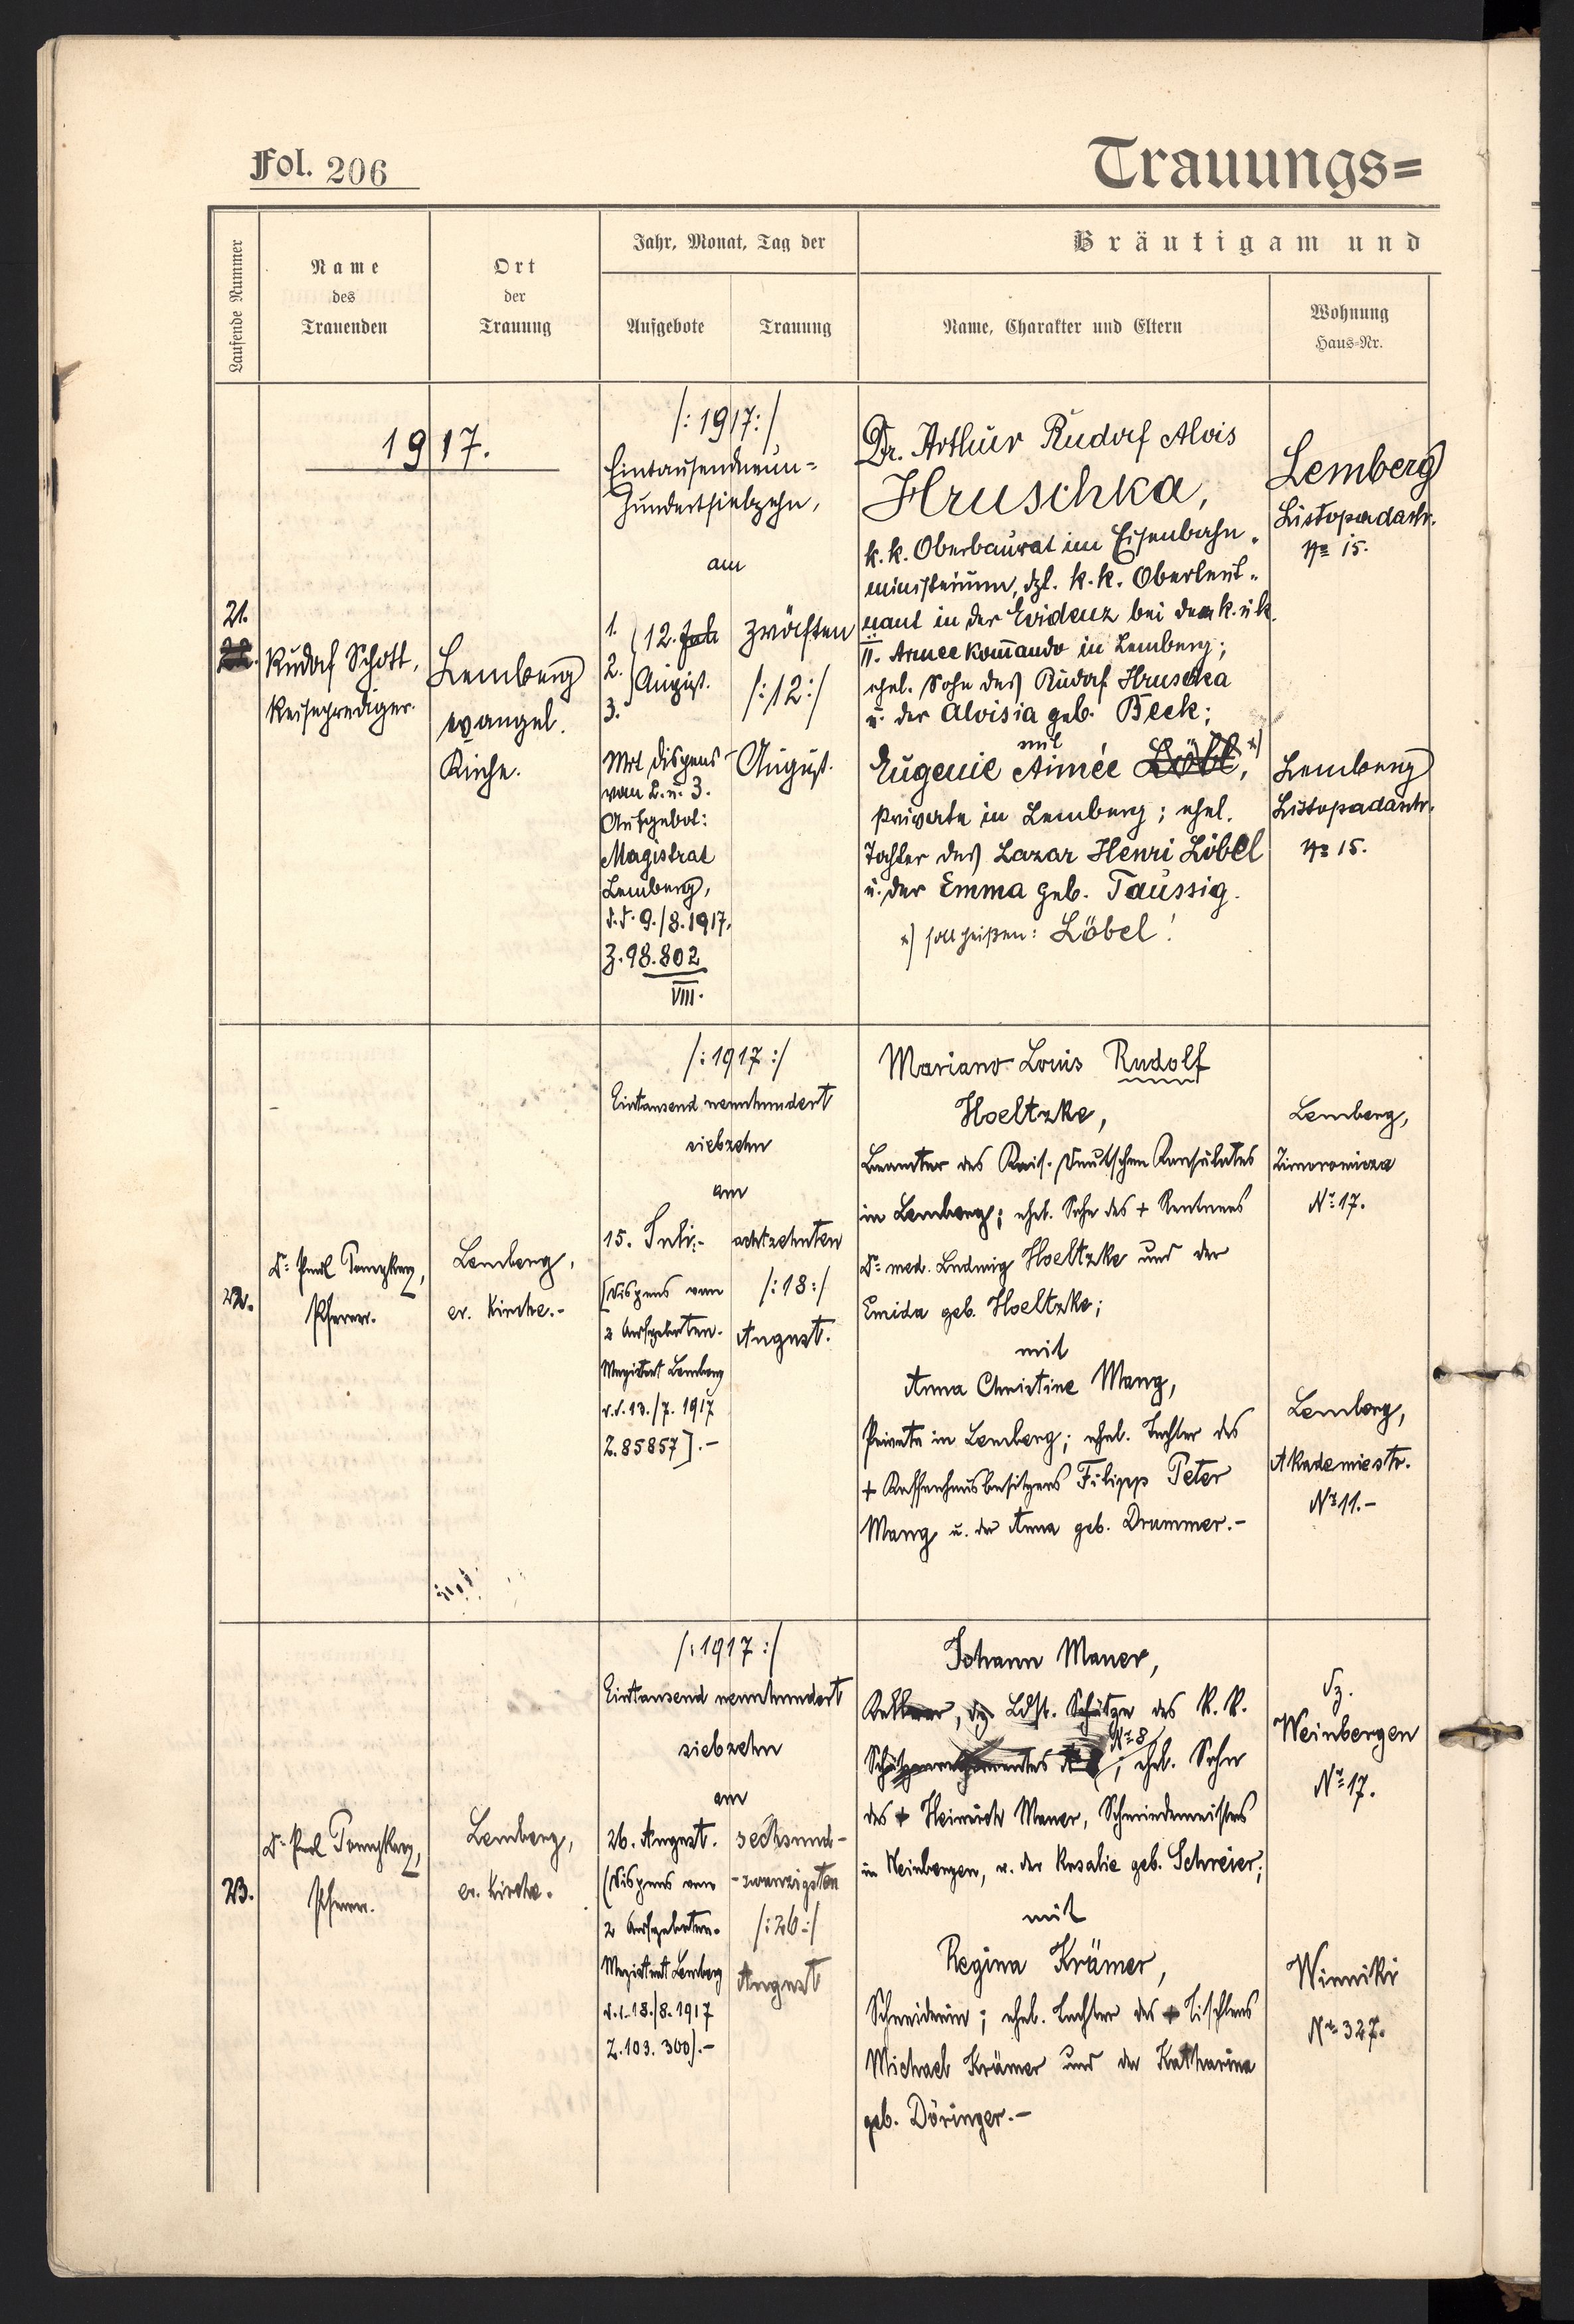 Fol. 206
Trauungs=
Laufende Nummer
Name
des
Trauenden
Ort
der
Trauung
Jahr, Monat, Tag der
Aufgebote
Trauung
Bräutigam und
Name, Charakter und Eltern
Wohnung
Haus-Nr.
1917.
21.
Rudolf Schott,
Reiseprediger.
Lemberg
evangel.
Kirche.
/: 1917 :/
Eintausendneun-
hundertsiebzehn,
am
1. (12. Juli
2. August.
3.
Mit Dispens
von 2. u. 3.
Aufgebot:
Magistrat
Lemberg,
d.d. 9./8.1917.
Z. 98.802
VIII.
zwölften
/: 12 :/
August.
Dr. Arthur Rudolf Alois
Hruschka,
k.k. Oberbaurat im Eisenbahn-
ministerium, dzt. k.k. Oberleut-
nant in der Evidenz bei dem k. u. k.
II. Armeekommando in Lemberg;
ehel. Sohn des Rudolf Hruschka
u. der Aloisia geb. Beck;
mit
Eugenie Aimée Löbl, x)
Private in Lemberg; ehel.
Tochter des Lazar Henri Löbel
u. der Emma geb. Taussig.
x) soll heißen: Löbel!
Lemberg
Listopadastr.
No 15.
Lemberg
Listopadastr.
No 15.
22.
Dr. Paul
Pfarrer.
Lemberg,
ev. Kirche.-
/: 1917 :/
Eintausend neunhundert
siebzehn
am
15. Juli.-
[Dispens von
2 Aufgeboten.
Magistrat Lemberg
d.d. 13./7. 1917
Z. 85857].-
achtzehnten
/: 18 :/
August.
Mariano Louis Rudolf
Hoeltzke,
Beamter des Kais. Deutschen Konsulates
in Lemberg; ehel. Sohn des + Rentners
Dr. med. Ludwig Hoeltzke und der
Emida geb. Hoeltzke;
mit
Anna Christine Mang,
Private in Lemberg; ehel. Tochter des
+ Kaffeehausbesitzers Filipp Peter
Mang u. der Anna geb. Drummer.-
Lemberg,
Zimorowicza
No 17.
Lemberg,
Akademiestr.
No 11.-
23.
Dr. Paul
Pfarrer.
Lemberg,
ev. Kirche.
/: 1917 :/
Eintausend neunhundert
siebzehn
am
26. August.
(Dispens von
2 Aufgeboten.
Magistrat Lemberg
d.d. 18./8. 1917
Z. 103.300).-
sechsund-
-zwanzigsten
/: 26 :/
August
Johann Mauer,
Kellner, dz. Ldst. Schütze des k.k.
Schützenregimentes No 8; ehel. Sohn
des + Heinrich Mauer, Schmiedemeisters
in Weinbergen, u. der Rosalie geb. Schreier;
mit
Regina Krämer,
Schneiderin; ehel. Tochter des + Tischlers
Michael Krämer und der Katharina
geb. Döringer.-
dz.
Weinbergen
No 17.
Winniki
No 327.